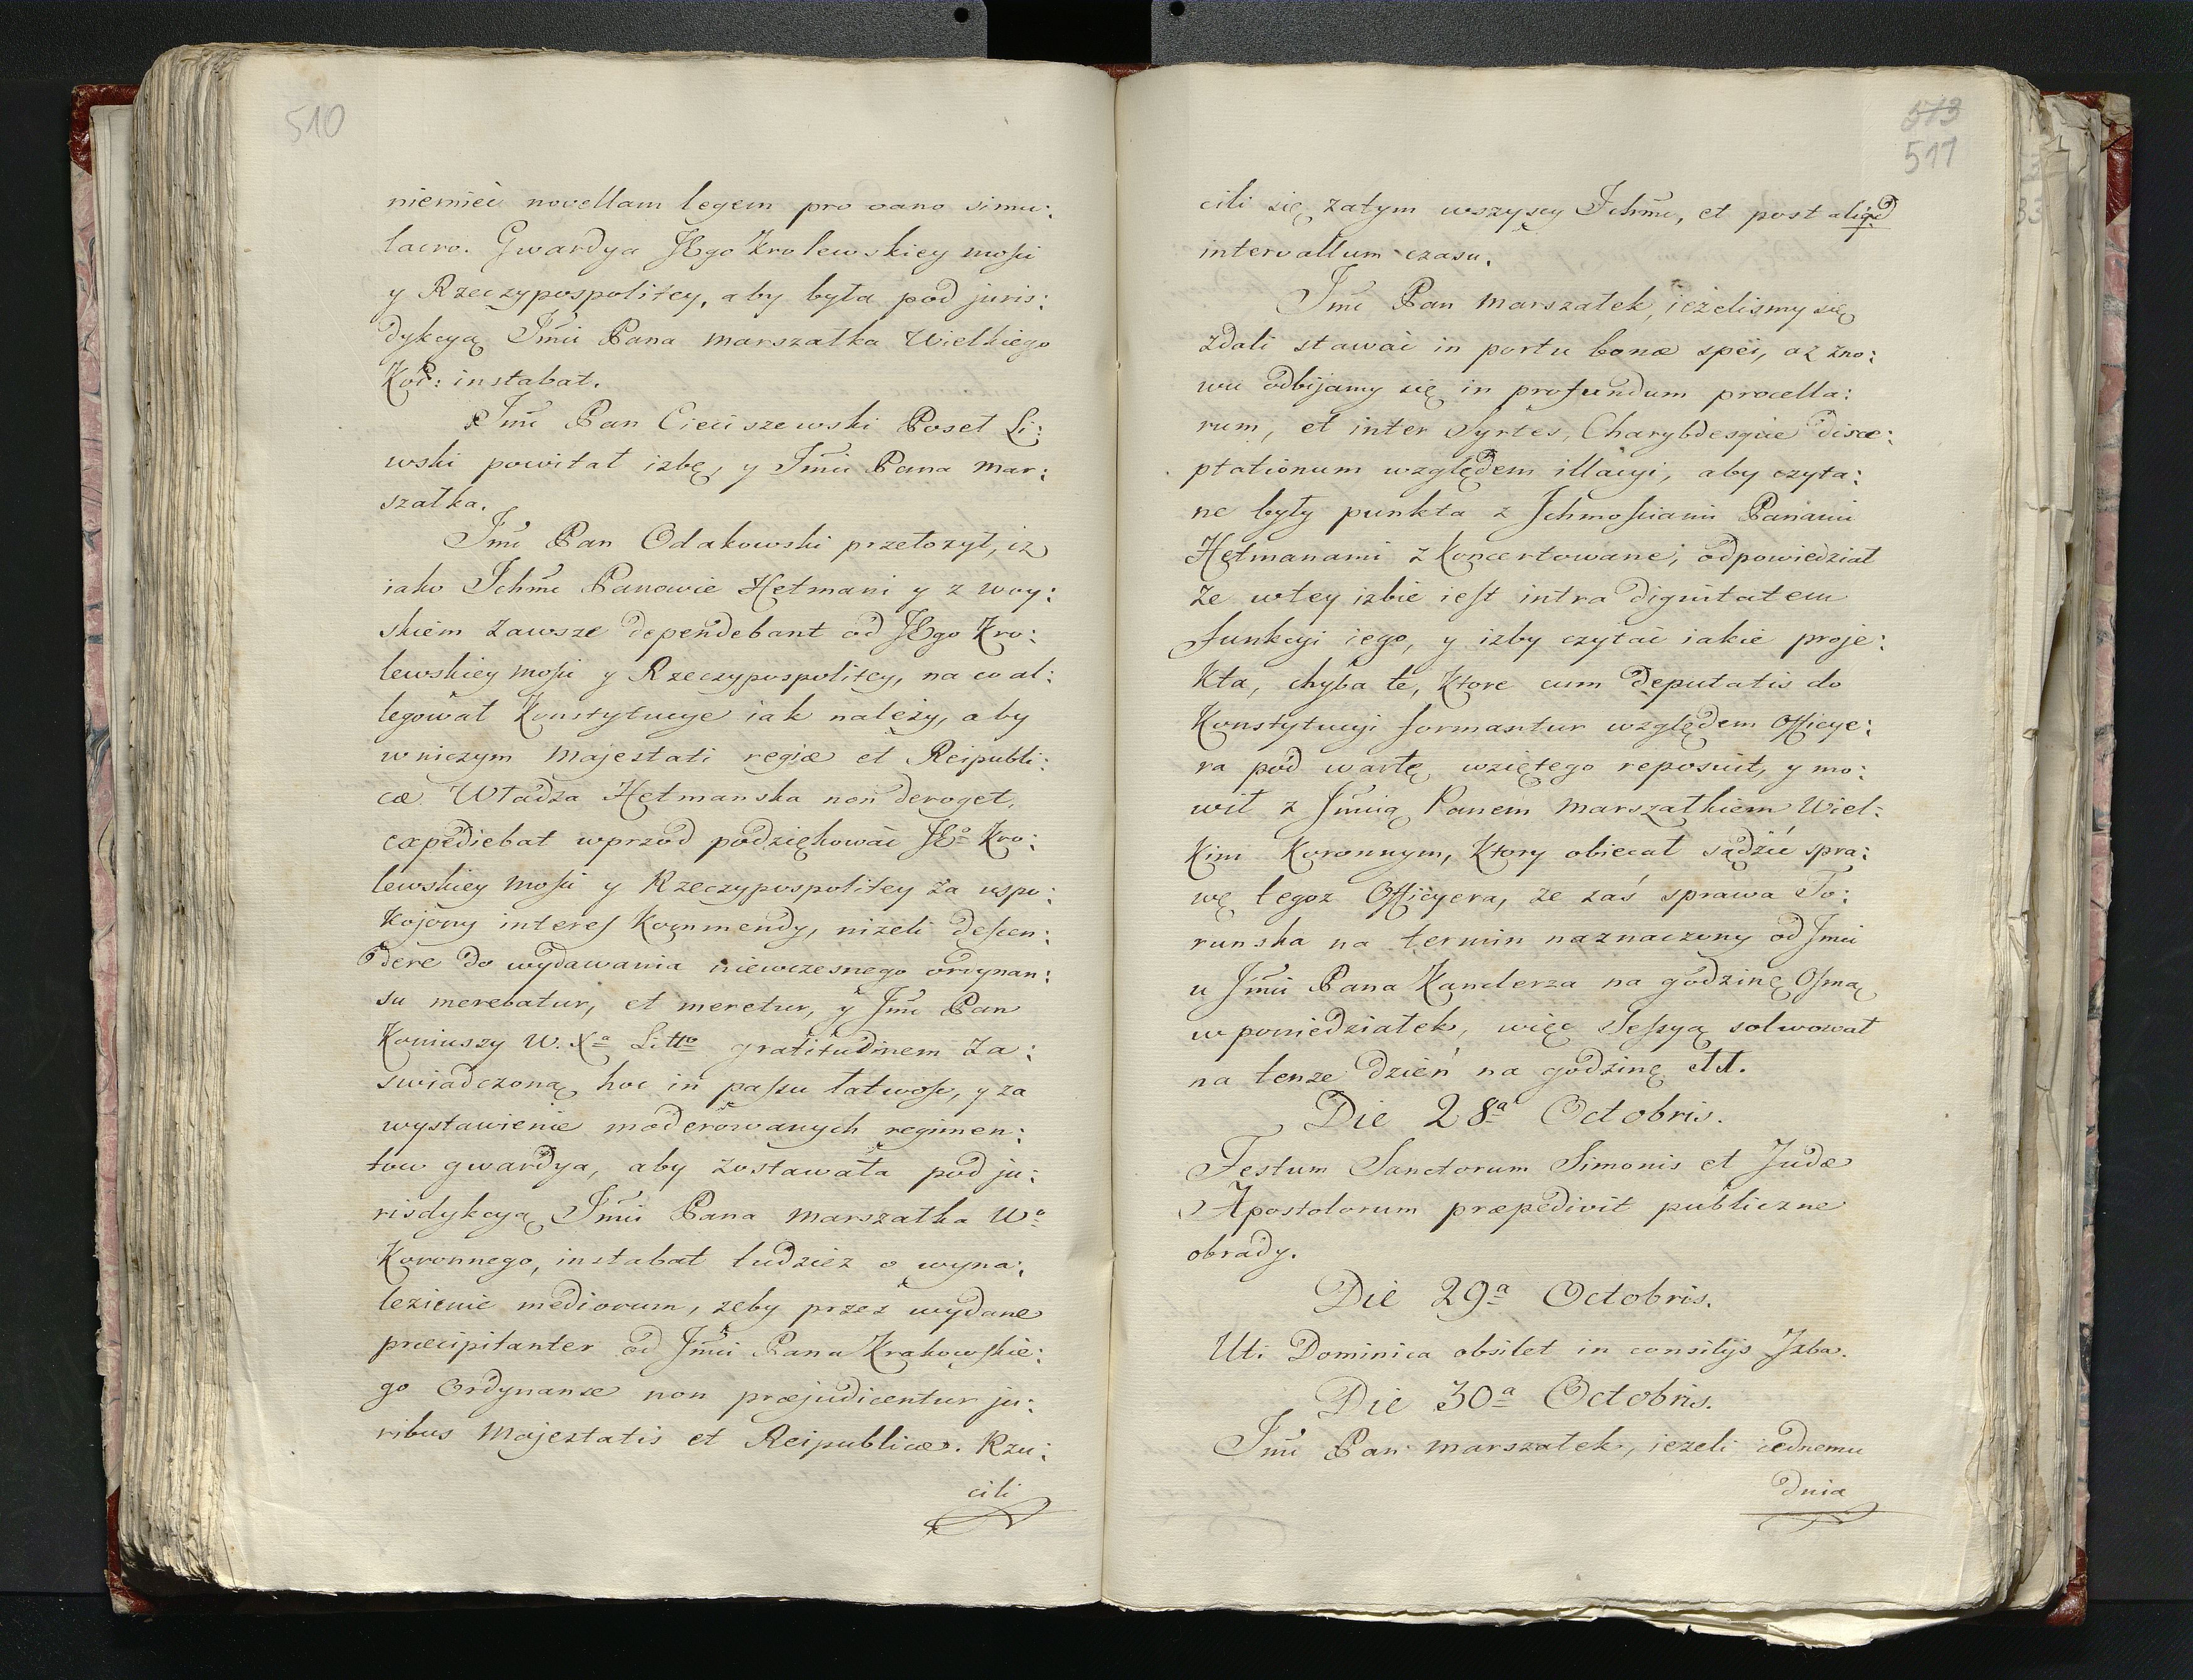 510
niemieć novellam legem pro vano simu:
lacro. Gwardya JEgo Krolewskiey mości
y Rzeczypospolitey, aby była pod juris:
dykcyą Jmći Pana marszałka Wielkiego
Kor: instabat.
Jmć Pan Cieciszewski Poseł Li:
wski powitał izbę, y Jmći Pana mar:
szałka.
Jmć Pan Odakowski przełożył, iż
iako Ichmć Panowie Hetmani y z woy:
skiem zawsze dependebant od JEgo Kro:
lewskiey mości y Rzeczypospolitey, na co al:
legował Konstytucye iak należy, aby
w niczym Majestati regiæ et Reipubli:
cæ Władza Hetmanska non deroget,
expediebat wprzod podziękować JEº Kro:
lewskiey mości y Rzeczypospolitey za uspo:
kojony interes Kommendy, niżeli descen:
dere do wydawania niewczesnego ordynan:
su merebatur, et meretur, y Jmć Pan
Koniuszy W. Xª Littº gratitudinem za:
swiadczoną hoc in passu łatwość, y za
wystawienie moderowanych regimen:
tow gwardya, aby zostawała pod ju:
risdykcyą Jmći Pana Marszałka Wº
Koronnego, instabat tudzież o wyna:
lezienie mediorum, żeby przez wydane
præcipitanter od Jmći Pana Krakowskie:
go Ordynanse non præjudicentur ju:
ribus Majestatis et Reipublicæ. Rzu:
cili
513
511
cili się zatym wszyscy Ichmć, et post aliqd
intervallum czasu.
Jmć Pan Marszałek, ieżelismy się
zdali stawać in portu bonæ spei, aż zno:
wu odbijamy się in profundum procella:
rum, et inter Syrtes, Charybdesque disce:
ptationum względem illacyi, aby czyta:
ne były punkta z Ichmościami Panami
Hetmanami zkoncertowane; odpowiedział
że w tey izbie iest intra dignitatem
funkcyi iego, y izby czytać iakie proje:
kta, chyba te, ktore cum deputatis do
Konstytucyi formantur względem Officye:
ra pod wartę wziętego reposuit, y mo:
wił z Jmcią Panem Marszałkiem Wiel:
kim Koronnym, ktory obiecał sądzić spra:
wę tegoż Officyera, że zaś sprawa To:
runska na termin naznaczony od Jmći
u Jmći Pana Kanclerza na godzinę Osmą
w poniedziałek, więc Sessyą solwował
na tenże dzień na godzinę 11.
Die 28ª Octobris.
Festum Sanctorum Simonis et Judæ
Apostolorum præpedivit publiczne
obrady.
Die 29ª Octobris.
Uti Dominica obsilet in consilijs Izba.
Die 30ª Octobris.
Jmć Pan Marszałek, ieżeli iednemu
dnia